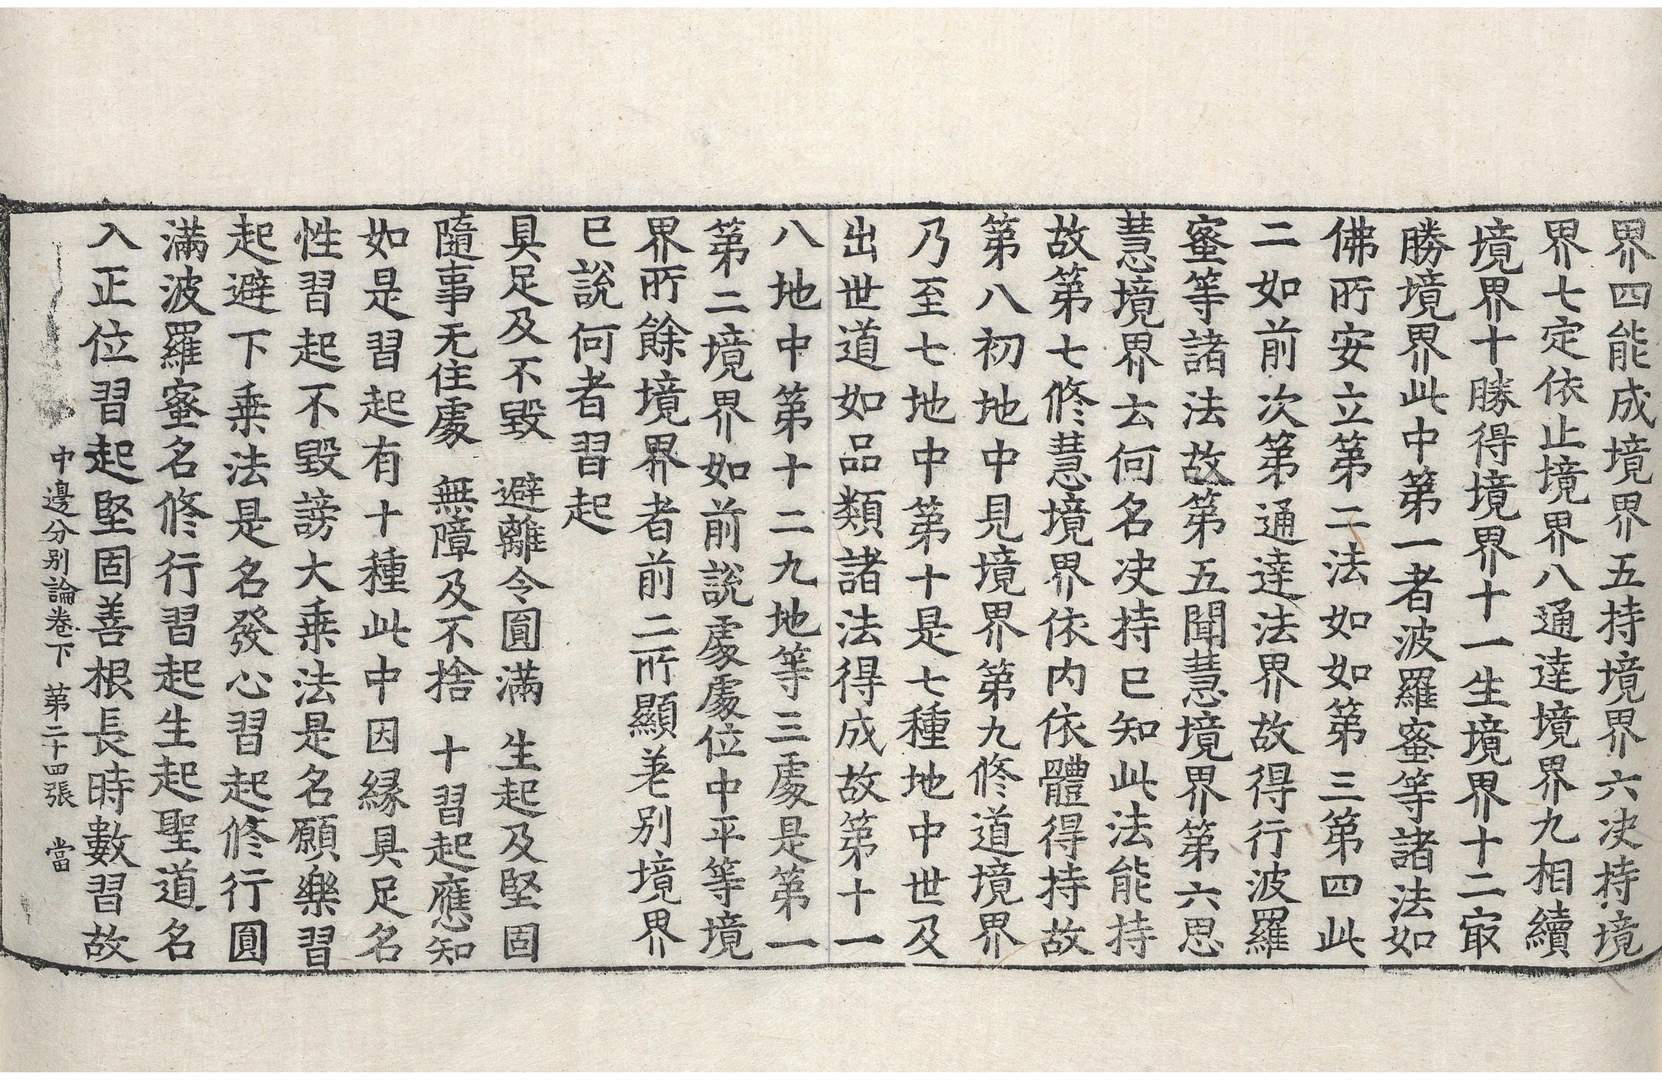 界四能成境界五持境界六决持境
界七定依止境界八通達境界九相續
境界十勝得境界十一生境界十二㝡
勝境界此中第一者波羅蜜等諸法如
佛所安立第二法如如第三第四此
二如前次第通達法界故得行波羅
蜜等諸法故第五聞慧境界第六思
慧境界去何名决持已知此法能持
故第七修慧境界依内依體得持故
第八初地中見境界第九修道境界
乃至七地中第十是七種地中世及
出世道如品類諸法得成故第十一
八地中第十二九地等三處是第一
第二境界如前說處處位中平等境
界所餘境界者前二所顯差别境界
已說何者習起
具足及不毀　避離令圓滿　生起及堅固
隨事无住處　無障及不捨　十習起應知
如是習起有十種此中因縁具足名
性習起不毀謗大乗法是名願樂習
起避下乗法是名發心習起修行圓
滿波羅蜜名修行習起生起聖道名
入正位習起堅固善根長時數習故
中邊分别論卷下　第二十四張　當